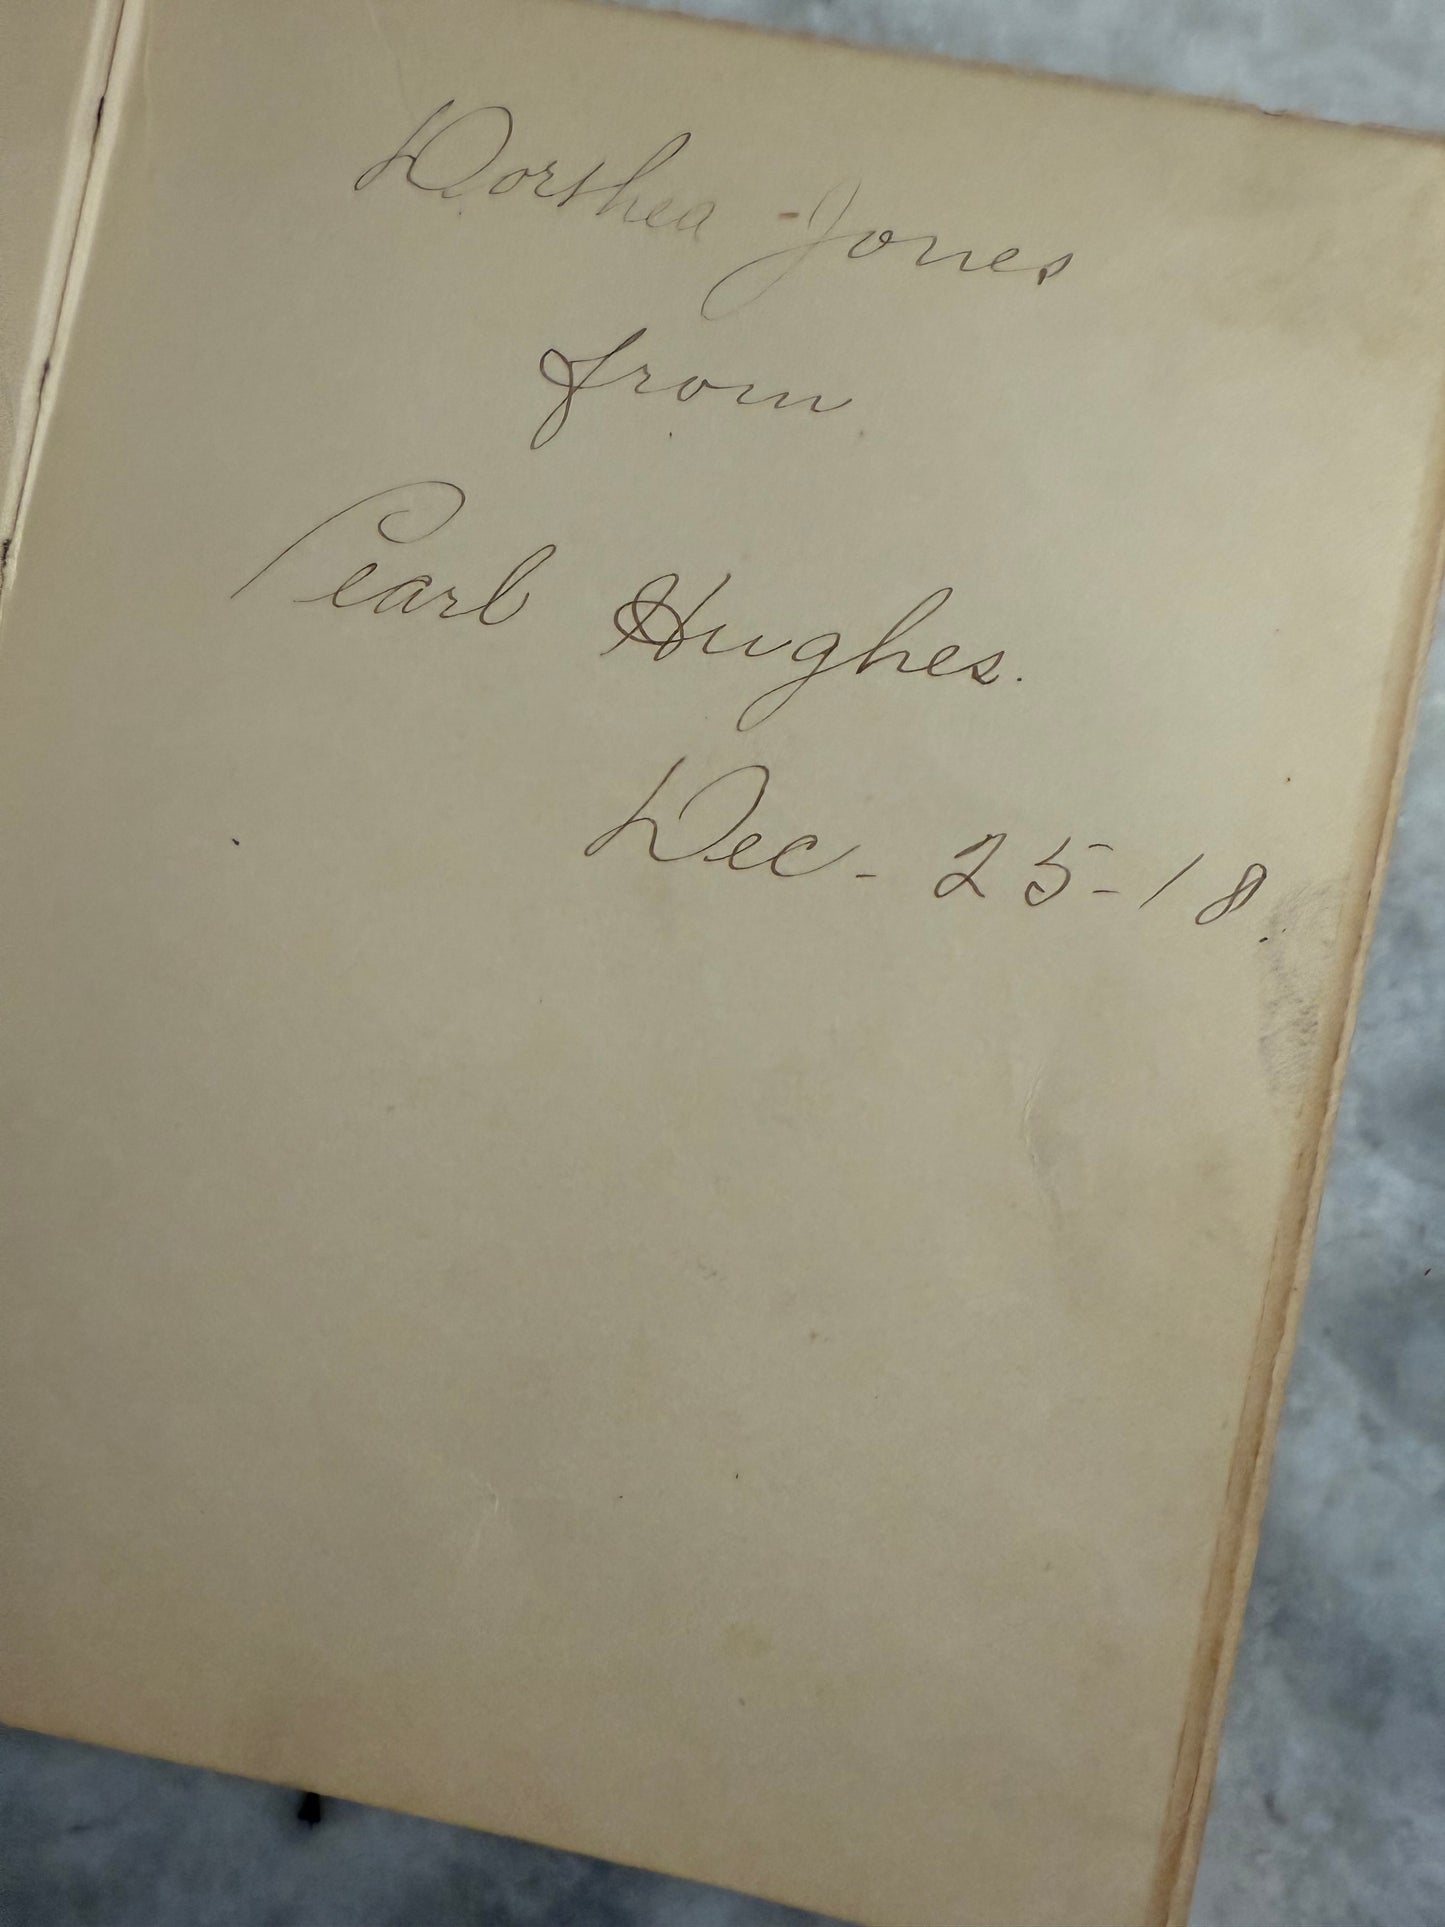 Dorthea Jones
from
Pearl Hughes.
Dec - 25 - 18.